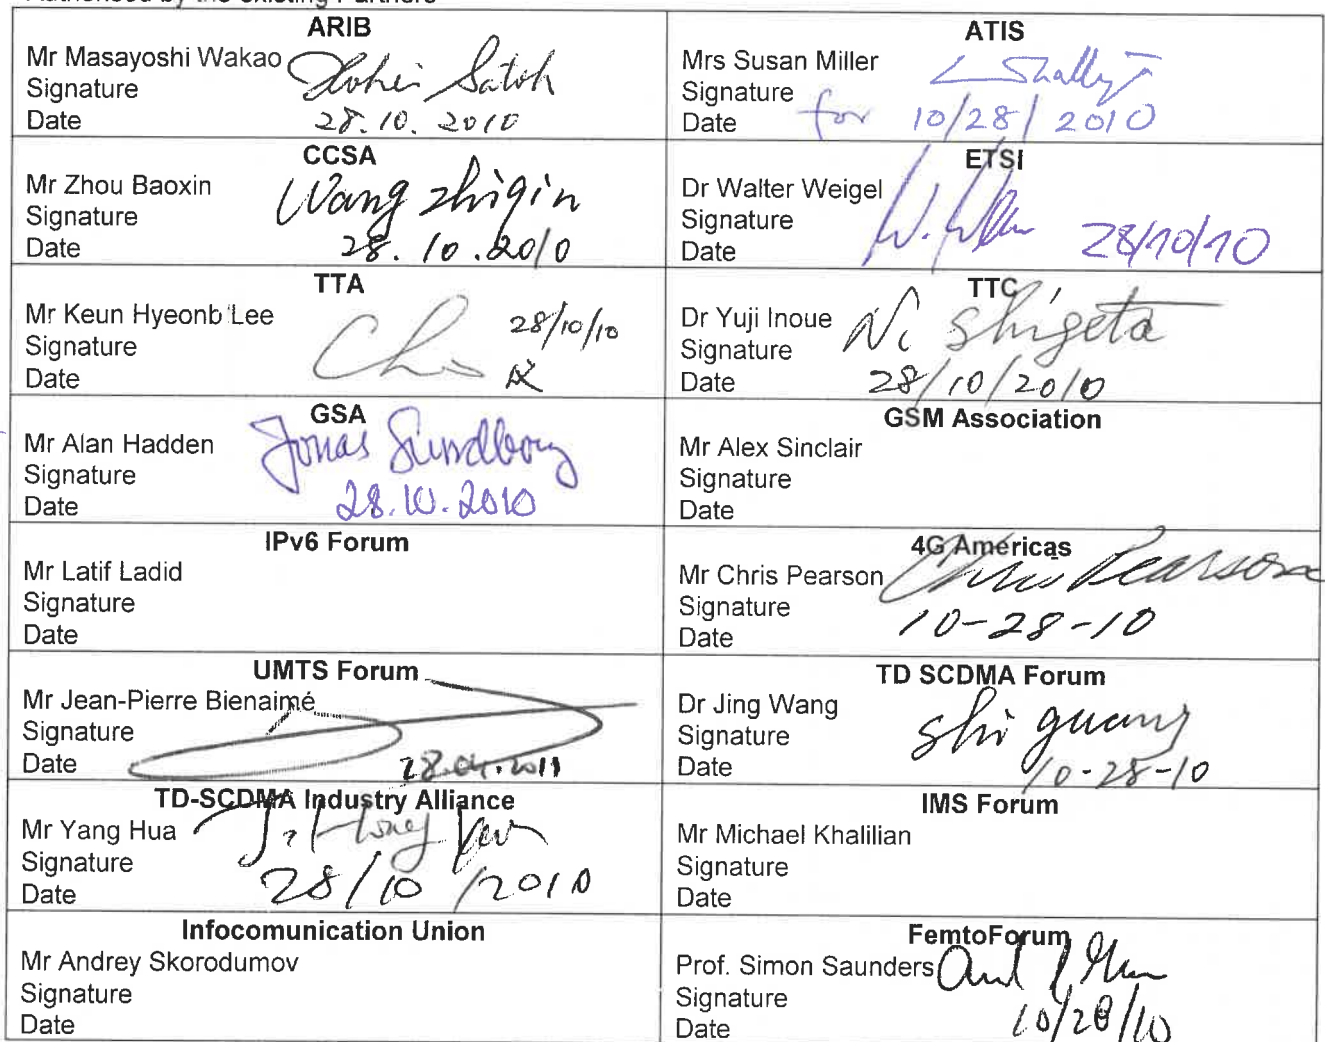 Authorised by the existing Partners
ARIB
Mr Masayoshi Wakao
Signature Satoh
Date 28.10.2010
ATIS
Mrs Susan Miller
Signature
Date for 10/28/2010
CCSA
Mr Zhou Baoxin
Signature Wang zhiqin
Date 28.10.2010
ETSI
Dr Walter Weigel
Signature
Date 28/10/10
TTA
Mr Keun Hyeonb Lee
Signature 28/10/10
Date
TTC
Dr Yuji Inoue
Signature N. Shigeta
Date 28/10/2010
GSA
Mr Alan Hadden
Signature Jonas Sundborg
Date 28.10.2010
GSM Association
Mr Alex Sinclair
Signature
Date
IPv6 Forum
Mr Latif Ladid
Signature
Date
4G Americas
Mr Chris Pearson
Signature Chris Pearson
Date 10-28-10
UMTS Forum
Mr Jean-Pierre Bienaimé
Signature
Date 28.04.2011
TD SCDMA Forum
Dr Jing Wang
Signature Shi guang
Date 10-28-10
TD-SCDMA Industry Alliance
Mr Yang Hua
Signature
Date 28/10/2010
IMS Forum
Mr Michael Khalilian
Signature
Date
Infocomunication Union
Mr Andrey Skorodumov
Signature
Date
FemtoForum
Prof. Simon Saunders
Signature
Date 10/28/10